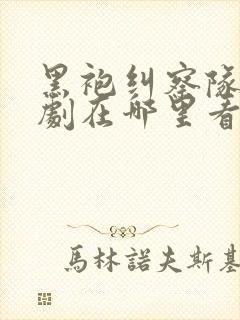 黑袍纠察隊
劇在哪里看
馬林諾夫斯基